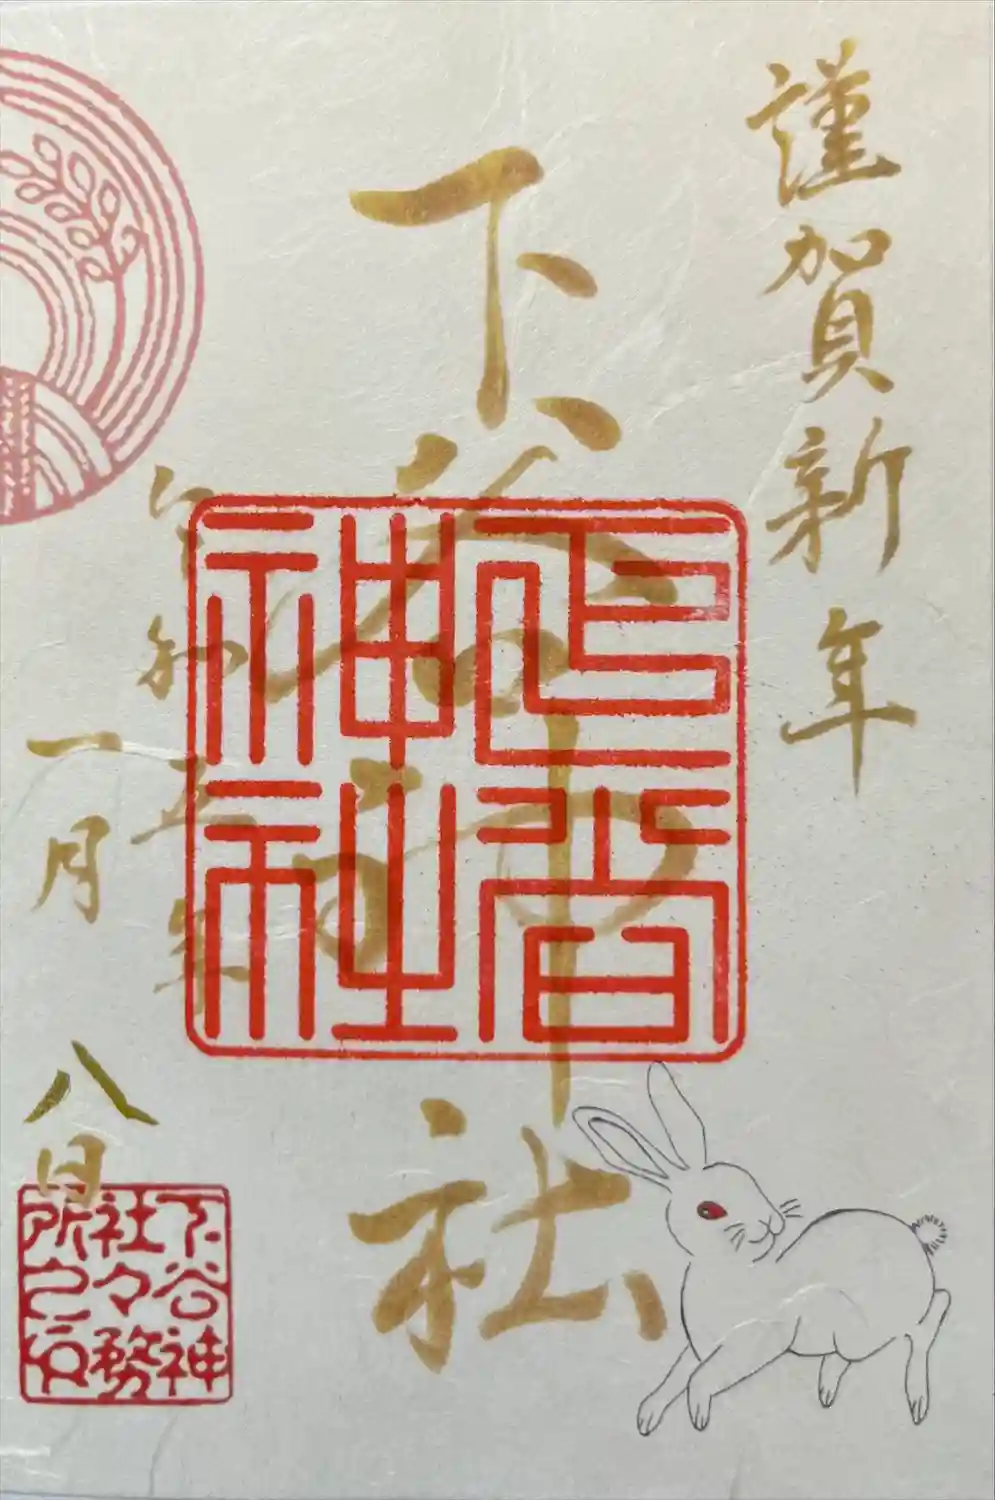 謹賀新年
下谷神社
下谷
神社
令和五年
一月八日
下谷神
社々務
所之印